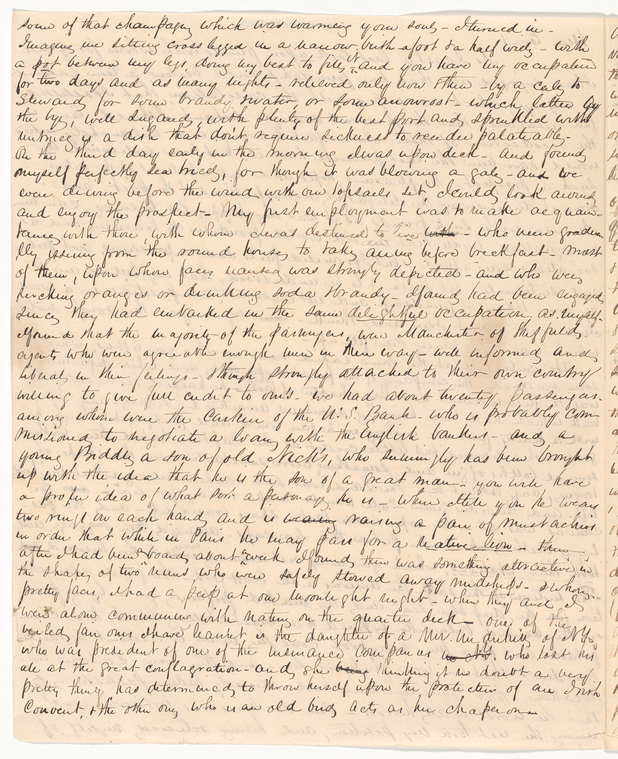 some of that champagne which was warming your souls - I turned in -
Imagine me sitting cross legged in a narrow berth a foot & a half wide - with
a pot between my legs, doing my best to fill it, and you have my occupation
for two days and as many nights - relieved only now & then - by a call to
Steward for some brandy & water, or some arrowroot - which latter by
the bye, well sugared, with plenty of the best port and sprinkled with
nutmeg is a dish that don't require sickness to render palatable -
On the third day early in the morning I was upon deck - and found
myself perfectly sea bred, for though it was blowing a gale - and we
were driving before the wind with our topsails set, I could look around
and enjoy the prospect - My first employment was to make acquain-
tance with those with whom I was destined to live - who were gradua
lly issuing from the round house, to take airing before breakfast - most
of them, upon whose faces nausea was strongly depicted - and who were
sucking oranges or drinking soda & brandy - I found had been engaged
since they had embarked in the same delightful occupation as myself.
I found that the majority of the passengers, were Manchester or Sheffield
agents who were agreeable enough men in their way - well informed and
liberal in their feelings - & though strongly attached to their own country
willing to give full credit to ours - we had about twenty passengers
among whom were the Cashier of the U.S. Bank - who is probably com
missioned to negotiate a loan with the English bankers - and a
young Biddle, a son of old Nick's, who seemingly has been brought
up with the idea that he is the son of a great man - you will have
a proper idea of what sort a personage he is - when I tell you he wears
two rings on each hand, and is raising a pair of mustachios
in order that while in Paris he may pass for a native lion - then
after I had been on board about a week I found there was something attractive in
the shape of two nuns who were safely stowed away midships - & whose
pretty faces, I had a peep at one moonlight night - when they and I
were alone communing with nature on the quarter deck - one of the
veiled fair ones I have learnt is the daughter of a Mr. of N.Y.
who was president of one of the insurance companies who lost his
all at the great conflagration - and she thinking it no doubt a very
pretty thing has determined to throw herself upon the protection of an Irish
Convent, & the other one who is an old bird acts as her chaperon -